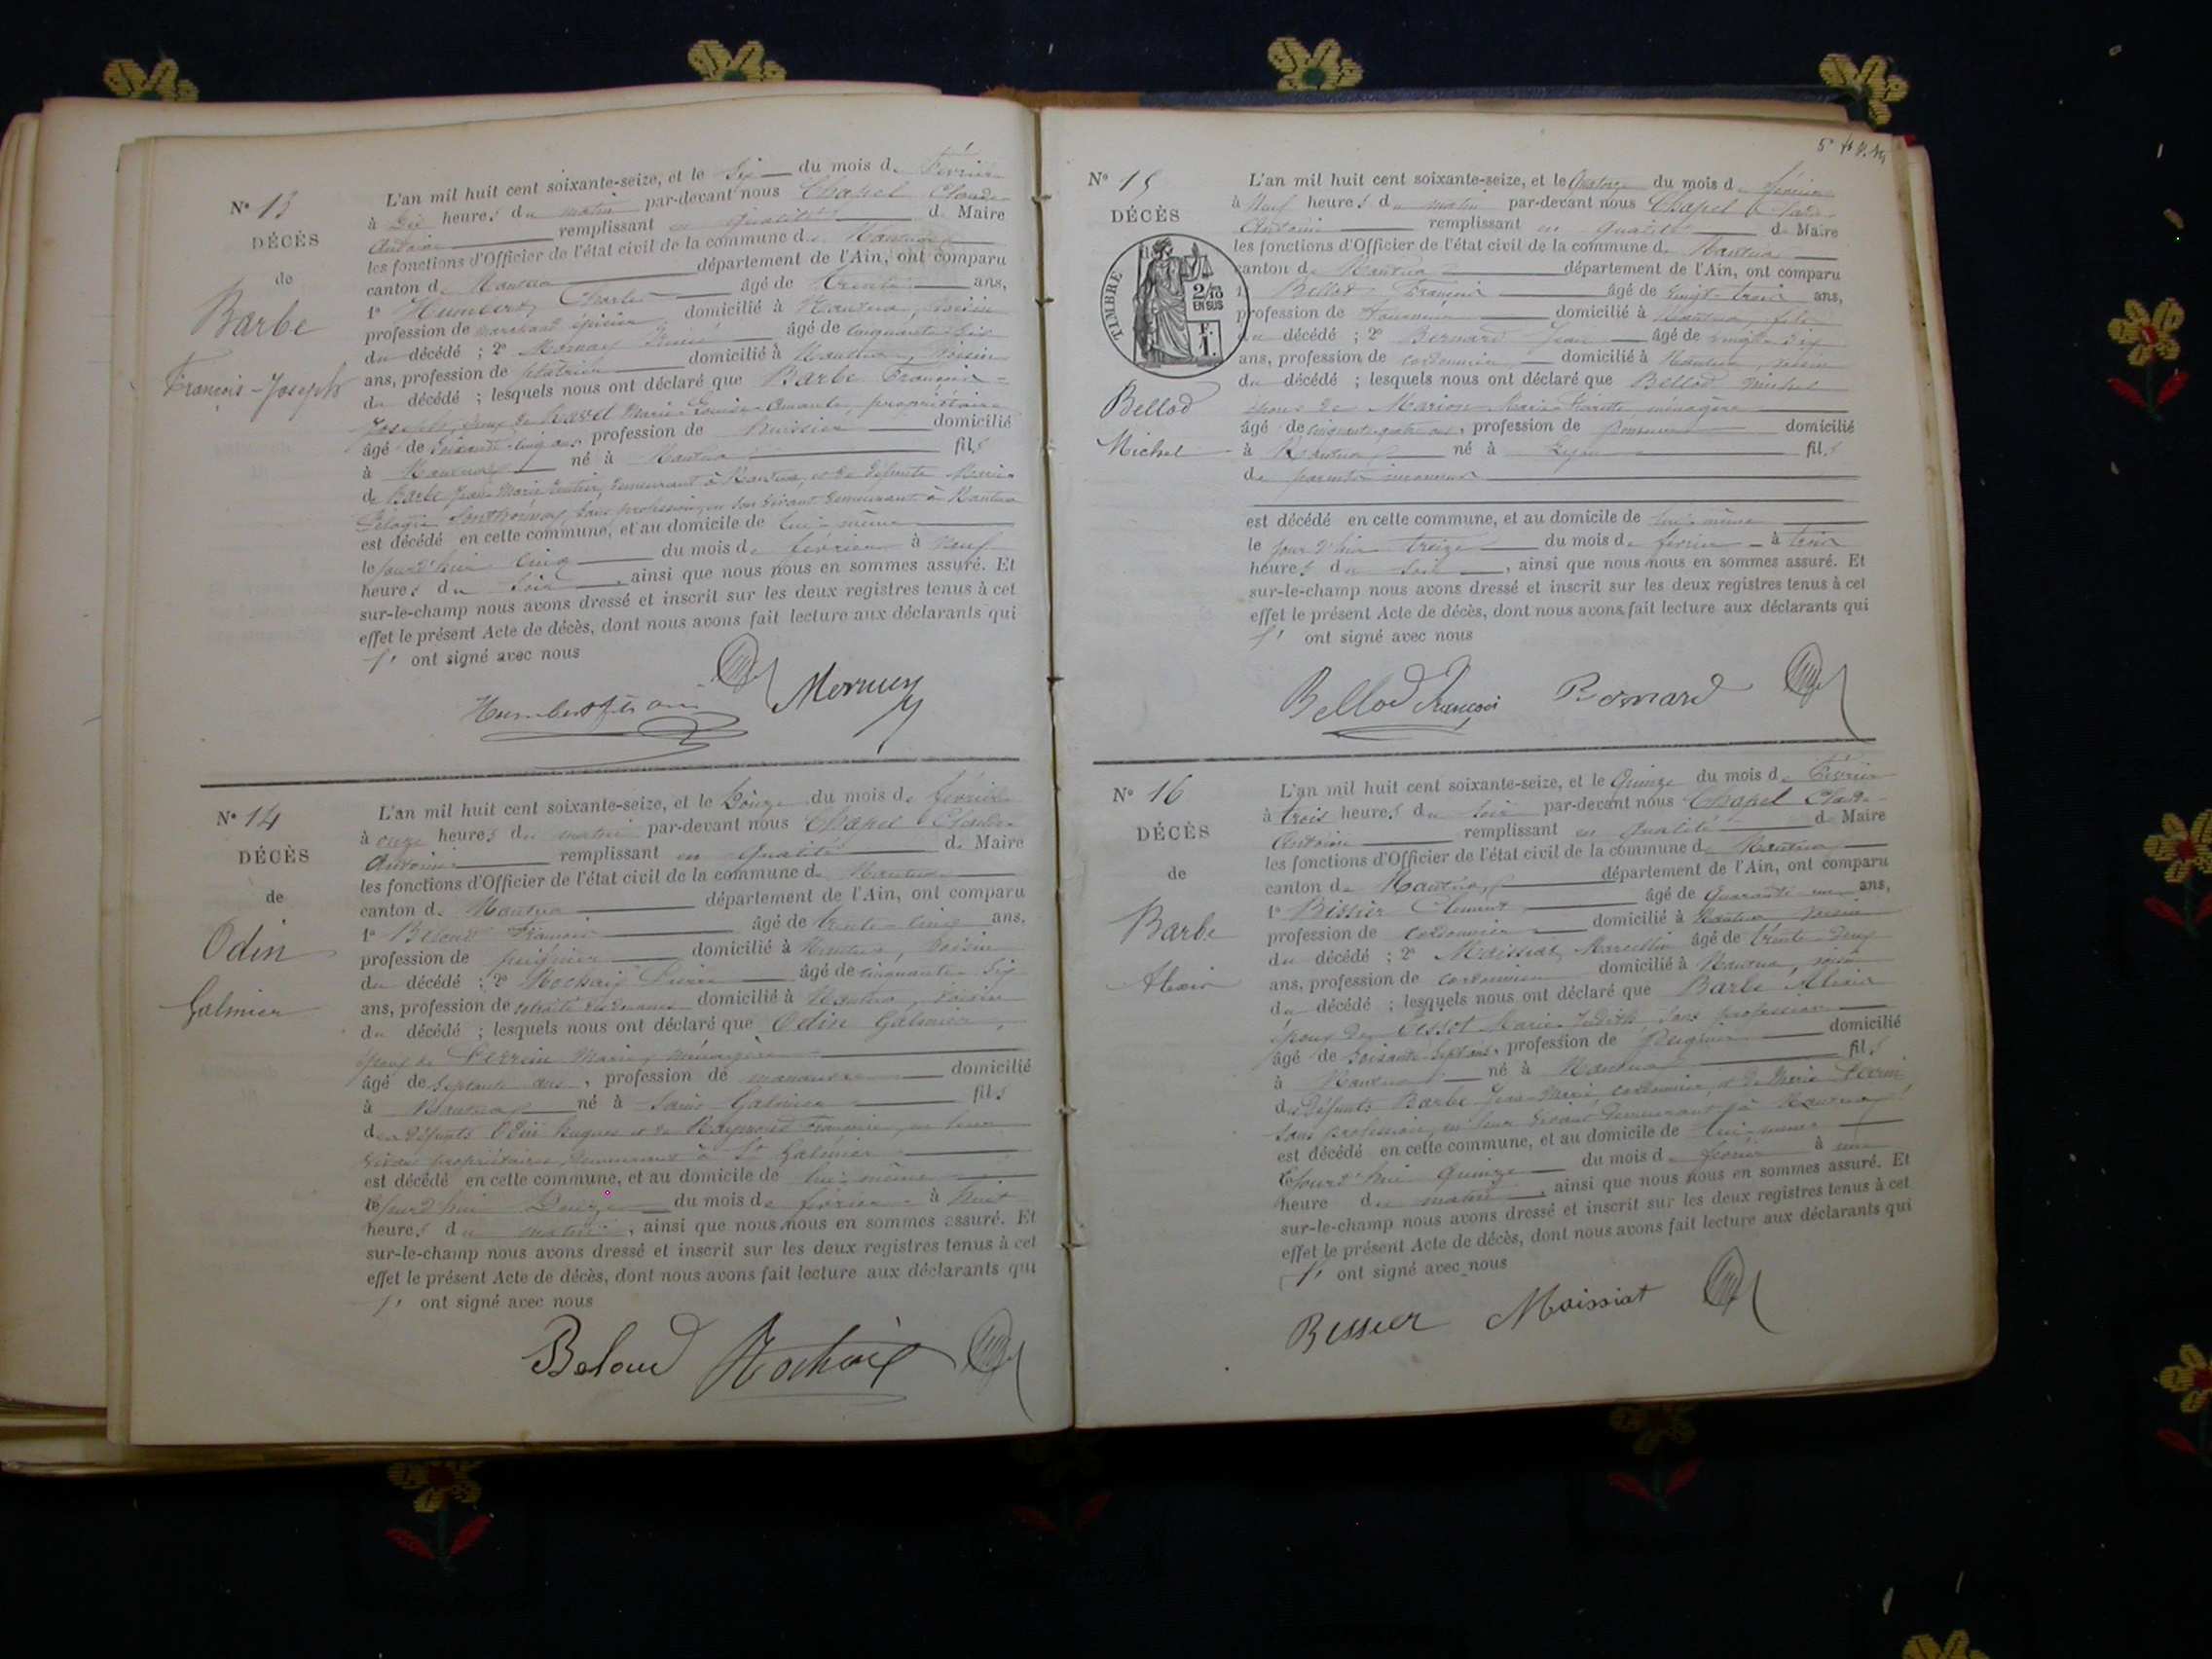 N° 13
DÉCÈS
de
Barbe
François-Joseph
L'an mil huit cent soixante-seize, et le Six du mois de Février
à Dix heures du matin par-devant nous Chapel Claude
Antoine remplissant en qualité de Maire
les fonctions d'Officier de l'état civil de la commune de Nantua
canton de Nantua département de l'Ain, ont comparu
1° Humbert Charles âgé de trente ans,
profession de marchand épicier domicilié à Nantua, voisin
du décédé ; 2° Mornay âgé de cinquante-six
ans, profession de platrier domicilié à Nantua, voisin
du décédé ; lesquels nous ont déclaré que Barbe François-
Joseph, époux de Marie Louise propriétaire
âgé de soixante-cinq ans profession de huissier domicilié
à Nantua né à Nantua fils
de Barbe Jean Marie rentier, demeurant à Nantua, et de défunte Marie
sans profession, en son vivant demeurant à Nantua
est décédé en cette commune, et au domicile de lui-même
le jour d'hier cinq du mois de février à neuf
heures du soir, ainsi que nous nous en sommes assuré. Et
sur-le-champ nous avons dressé et inscrit sur les deux registres tenus à cet
effet le présent Acte de décès, dont nous avons fait lecture aux déclarants qui
ont signé avec nous
Mornay
N° 14
DÉCÈS
de
Odin
Galmier
L'an mil huit cent soixante-seize, et le Douze du mois de février
à onze heures du matin par-devant nous Chapel Claude
Antoine remplissant en qualité de Maire
les fonctions d'Officier de l'état civil de la commune de Nantua
canton de Nantua département de l'Ain, ont comparu
1° Beloud François âgé de trente-cinq ans,
profession de domicilié à Nantua, voisin
du décédé ; 2° Rochaix Pierre âgé de cinquante-six
ans, profession de retraité des douanes domicilié à Nantua, voisin
du décédé ; lesquels nous ont déclaré que Odin Galmier,
époux de Perrin Marie, ménagère
âgé de septante ans, profession de manœuvre domicilié
à Nantua né à Saint Galmier fils
des défunts Odin hugues et de Raymond en leur
vivant propriétaires, demeurant à St Galmier
est décédé en cette commune, et au domicile de lui-même
le jourd'hui Douze du mois de février à huit
heures du matin, ainsi que nous nous en sommes assuré. Et
sur-le-champ nous avons dressé et inscrit sur les deux registres tenus à cet
effet le présent Acte de décès, dont nous avons fait lecture aux déclarants qui
ont signé avec nous
Beloud Rochaix
N° 15
DÉCÈS
TIMBRE
2/10
EN SUS
Bellod
Michel
L'an mil huit cent soixante-seize, et le Quatorze du mois de février
à Neuf heures du matin par-devant nous Chapel Claude
Antoine remplissant en qualité de Maire
les fonctions d'Officier de l'état civil de la commune de Nantua
canton de Nantua département de l'Ain, ont comparu
1° Bellod François âgé de vingt-trois ans,
profession de domicilié à Nantua, fils
du décédé ; 2° Bernard Jean âgé de vingt-six
ans, profession de cordonnier domicilié à Nantua, voisin
du décédé ; lesquels nous ont déclaré que Bellod Michel
époux de Marion Marie Pierrette ménagère
âgé de cinquante-quatre ans, profession de domicilié
à Nantua né à Lyon fils
de parents inconnus
est décédé en cette commune, et au domicile de lui-même
le jour d'hier treize du mois de février à trois
heures du soir, ainsi que nous nous en sommes assuré. Et
sur-le-champ nous avons dressé et inscrit sur les deux registres tenus à cet
effet le présent Acte de décès, dont nous avons fait lecture aux déclarants qui
ont signé avec nous
Bellod François Bernard
N° 16
DÉCÈS
de
Barbe
Alexis
L'an mil huit cent soixante-seize, et le Quinze du mois de Février
à trois heures du soir par-devant nous Chapel Claude
Antoine remplissant en qualité de Maire
les fonctions d'Officier de l'état civil de la commune de Nantua
canton de Nantua département de l'Ain, ont comparu
1° Bissier Clément âgé de Quarante-un ans,
profession de cordonnier domicilié à Nantua, voisin
du décédé ; 2° Maissiat Marcellin âgé de trente-deux
ans, profession de cordonnier domicilié à Nantua, voisin
du décédé ; lesquels nous ont déclaré que Barbe Alexis
époux de Marie Judith, sans profession
âgé de soixante-sept ans, profession de domicilié
à Nantua né à Nantua fils
des défunts Barbe Jean-Marie, cordonnier, et de Marie
sans profession, en leur vivant demeurant à Nantua
est décédé en cette commune, et au domicile de lui-même
le jourd'hui Quinze du mois de février à une
heure du matin, ainsi que nous nous en sommes assuré. Et
sur-le-champ nous avons dressé et inscrit sur les deux registres tenus à cet
effet le présent Acte de décès, dont nous avons fait lecture aux déclarants qui
ont signé avec nous
Bissier Maissiat